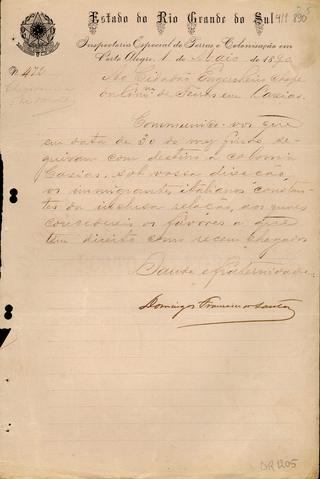 Estado do Rio Grande do Sul
Inspectoria Especial de Terras e Colonisação em
Porto Alegre, 1 de Maio de 1890
N. 472
Ao Cidadão Engenheiro Chefe
da Com. de Terras em Caxias.
Communico-vos que
em data de 30 do mez findo se-
guiram com destino a colonia
Caxias, sob vossa direcção,
os immigrantes italianos constan-
tes da inclusa relação, aos quaes
concedereis os favores a que
tem direito como recem chegados
Saude e fraternidade
Domingos Francisco dos Santos
DR 1205